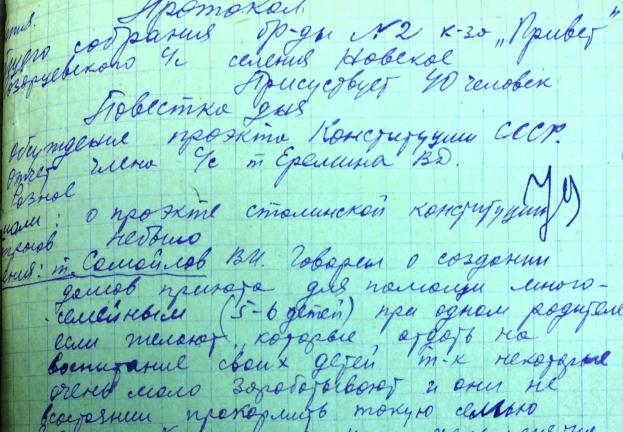 Протокол
общего собрания бр-ды №2 к-за „Привет"
с/с селения Новское
Присуствует 40 человек
Повестка дня
обсуждение проэкта Конституции СССР.
Отчет члена с/с т Еремина ВД.
Разное
о проэкте сталинской конституции
небыло
т. Самойлов В.И. Говорил о создании
домов приюта для помощи много-
семейным (5-6 детей) при одном родителе
если желают, которые отдать на
воспитание своих детей т-к некоторые
очень мало зарабатывают и они не
всостоянии прокормить такую семью